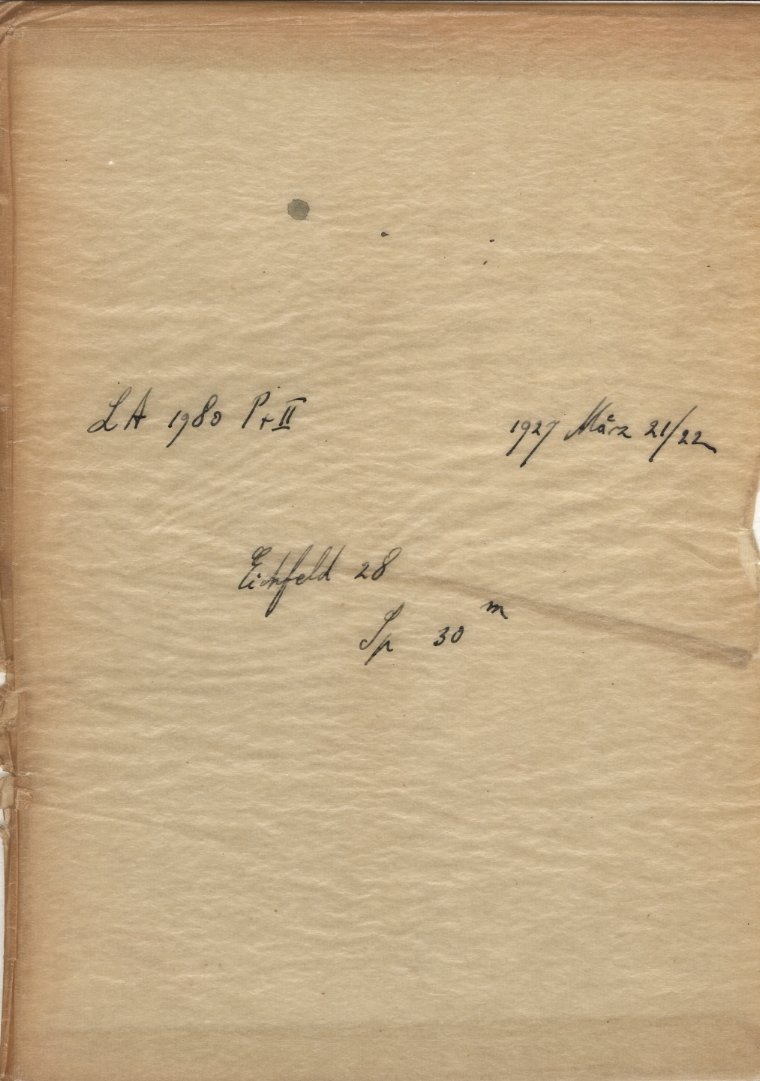 LA 1980 Pr II 1927 März 21/22
Eichfeld 28
Sp 30 m